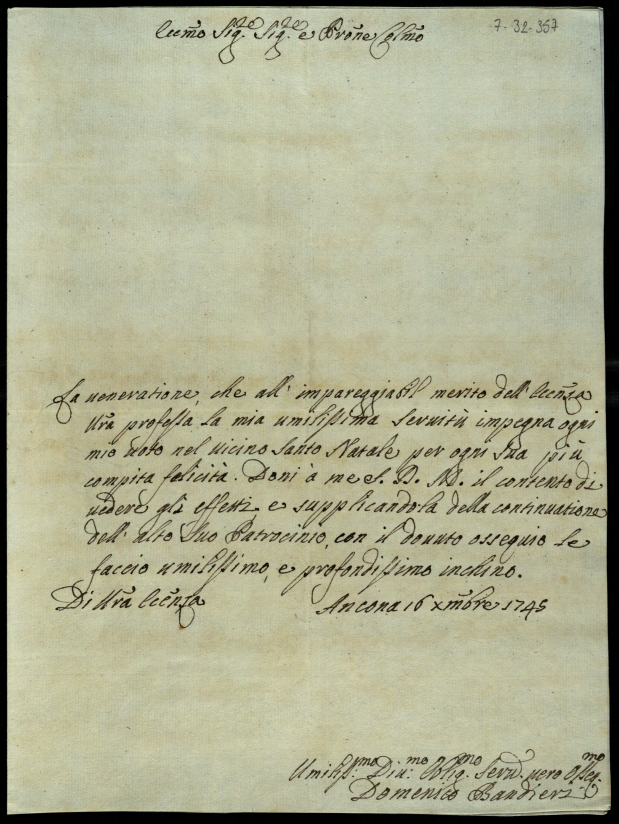 7-32-357
Eccmo Sig.re Sig.re e Prone Colmo
La veneratione, che all' impareggiabil merito dell' Eccenza
Vra professa la mia umilissima servitù impegna ogni
mio voto nel vicino Santo Natale per ogni Sua più
compita felicità. Doni à me S. D. M. il contento di
vedere gli effetti, e supplicandola della continuatione
dell' alto Suo Patrocinio, con il dovuto ossequio le
faccio umilissimo, e profondissimo inchino.
Di Vra Eccenza
Ancona 16 xmbre 1745
Umiliss.mo Div.mo Oblig.mo Serv. vero Osseq.mo
Domenico Bandieri